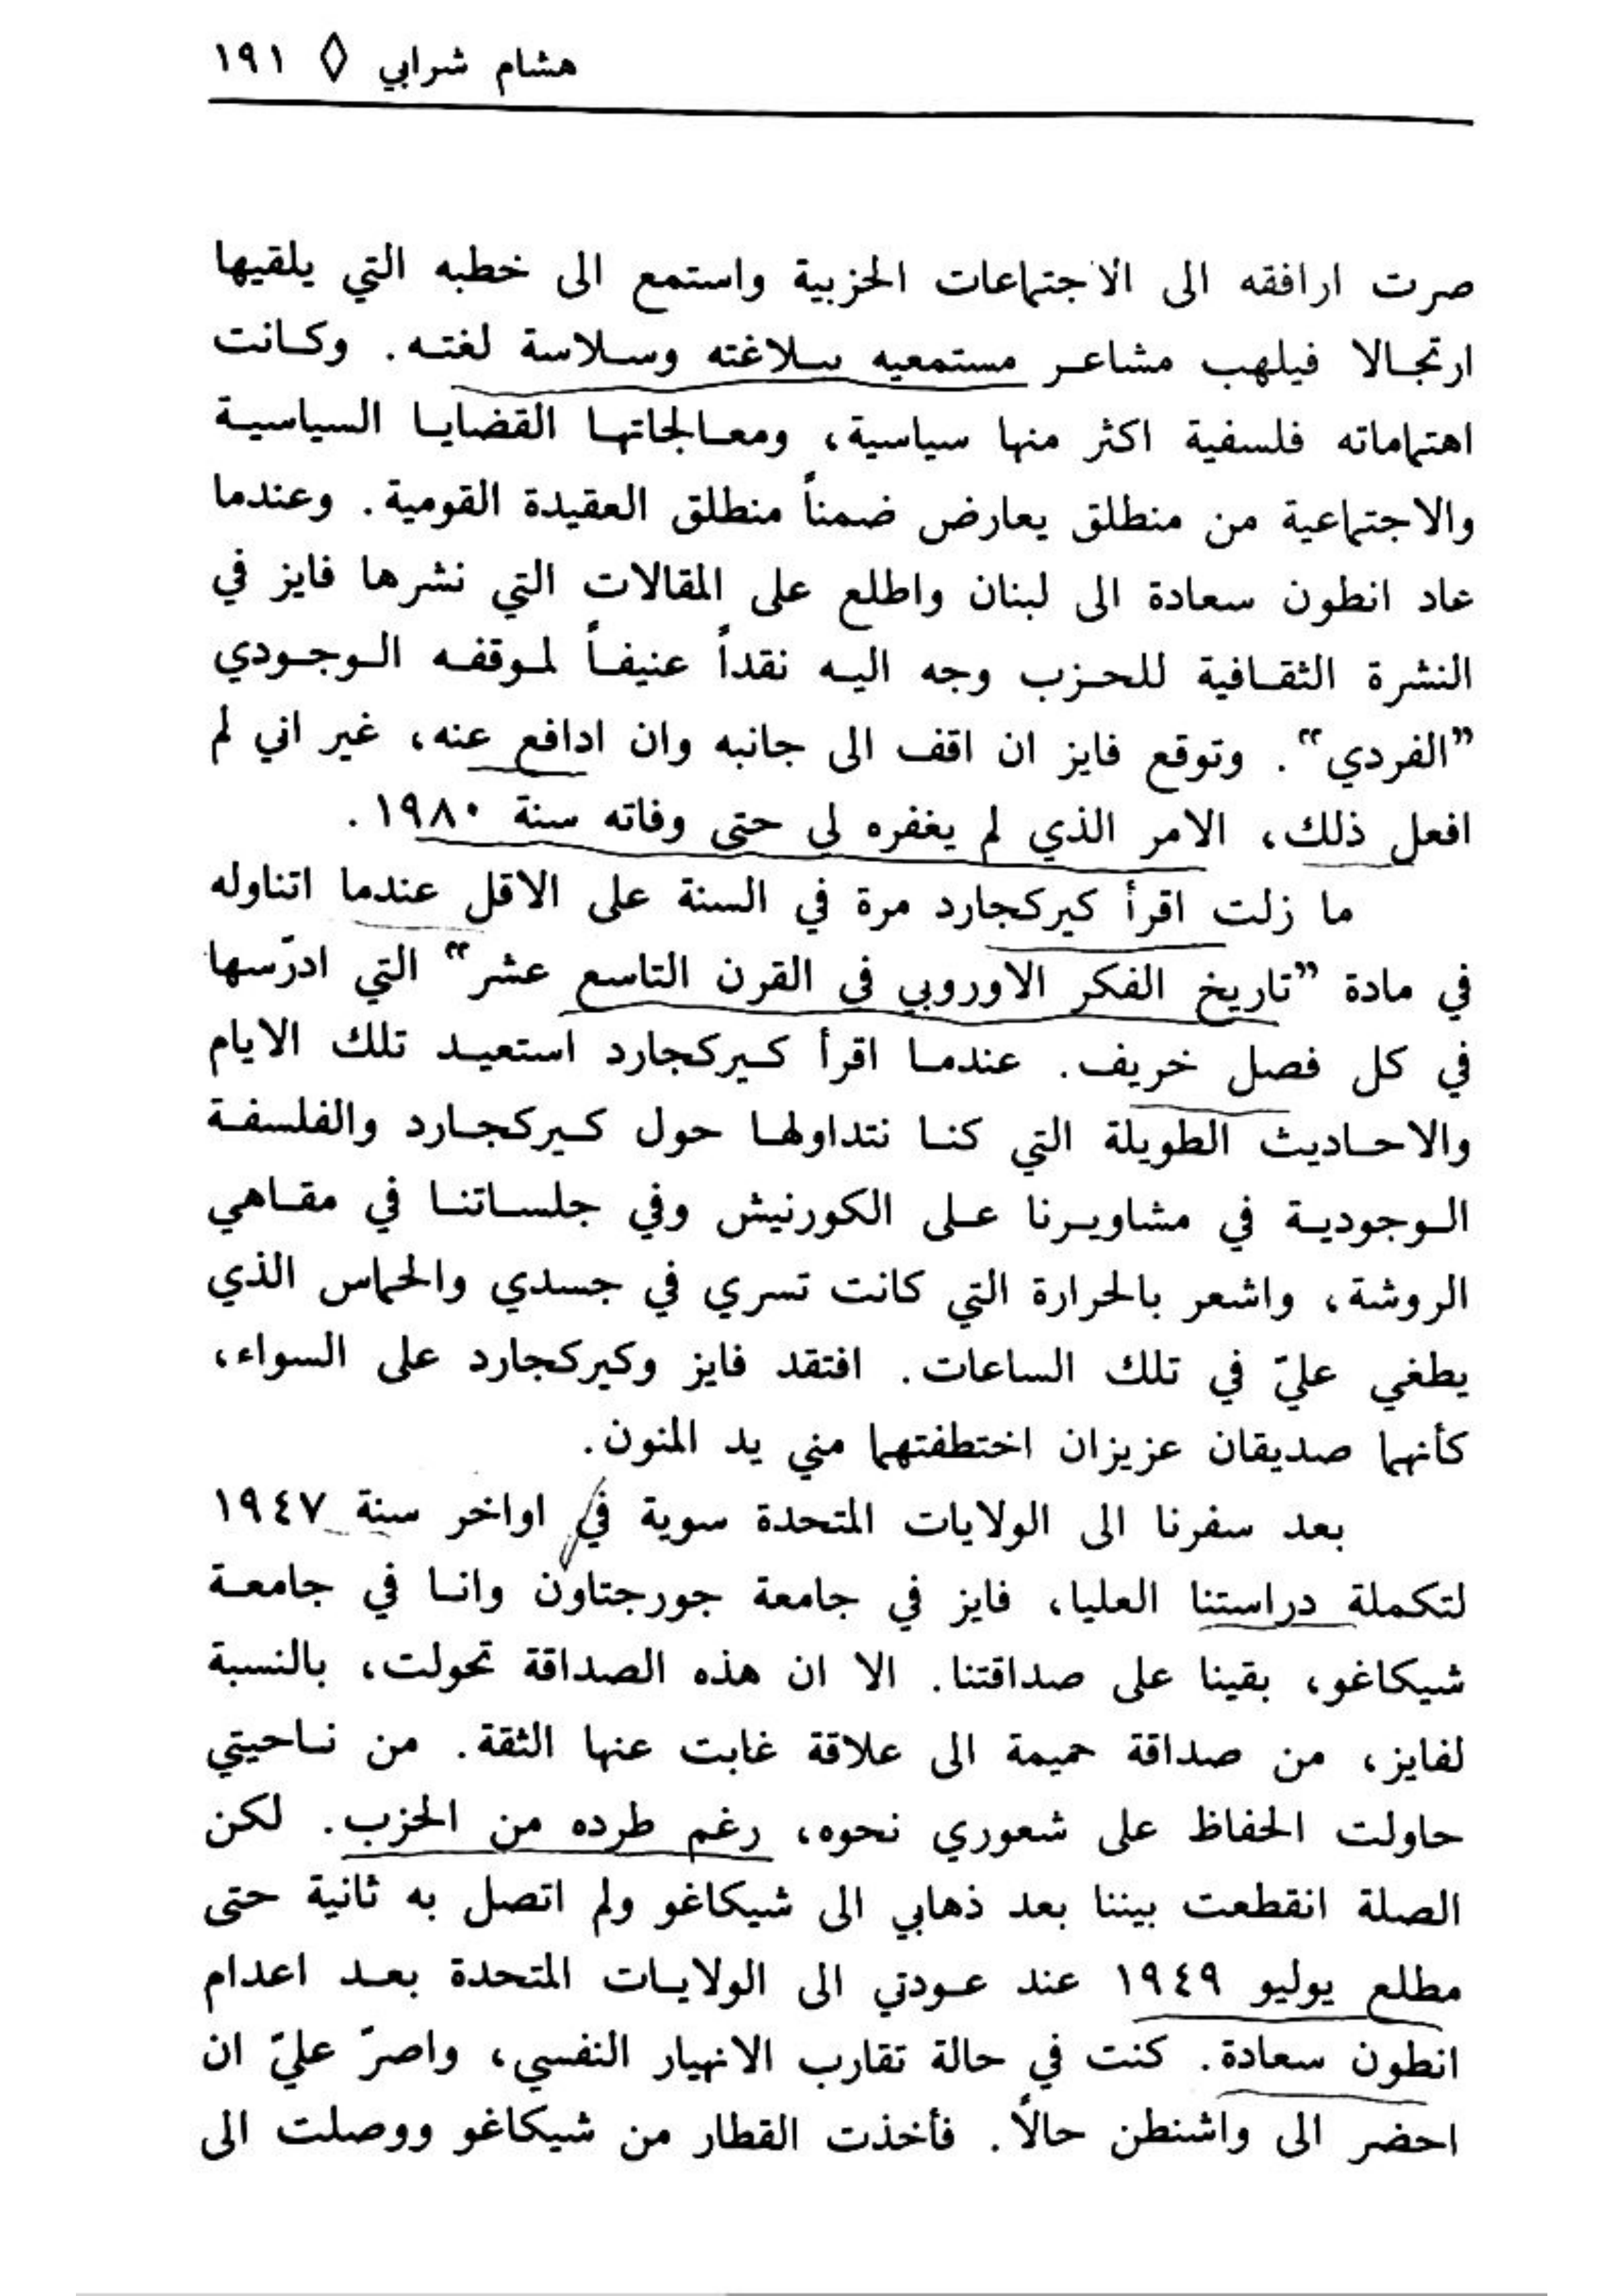 هشام شرابي ◊ ١٩١
صرت ارافقه الى الاجتماعات الحزبية واستمع الى خطبه التي يلقيها
ارتجالا فيلهب مشاعر مستمعيه ببلاغته وسلاسة لغته. وكانت
اهتماماته فلسفية اكثر منها سياسية، ومعالجاتها القضايا السياسية
والاجتماعية من منطلق يعارض ضمناً منطلق العقيدة القومية. وعندما
عاد انطون سعادة الى لبنان واطلع على المقالات التي نشرها فايز في
النشرة الثقافية للحزب وجه اليه نقداً عنيفاً لموقفه الوجودي
”الفردي“. وتوقع فايز ان اقف الى جانبه وان ادافع عنه، غير اني لم
افعل ذلك، الامر الذي لم يغفره لي حتى وفاته سنة ١٩٨٠.
ما زلت اقرأ كيركجارد مرة في السنة على الاقل عندما اتناوله
في مادة ”تاريخ الفكر الاوروبي في القرن التاسع عشر“ التي ادرّسها
في كل فصل خريف. عندما اقرأ كيركجارد استعيد تلك الايام
والاحاديث الطويلة التي كنا نتداولها حول كيركجارد والفلسفة
الوجودية في مشاويرنا على الكورنيش وفي جلساتنا في مقاهي
الروشة، واشعر بالحرارة التي كانت تسري في جسدي والحماس الذي
يطغي عليّ في تلك الساعات. افتقد فايز وكيركجارد على السواء،
كأنهما صديقان عزيزان اختطفتهما مني يد المنون.
بعد سفرنا الى الولايات المتحدة سوية في اواخر سنة ١٩٤٧
لتكملة دراستنا العليا، فايز في جامعة جورجتاون وانا في جامعة
شيكاغو، بقينا على صداقتنا. الا ان هذه الصداقة تحولت، بالنسبة
لفايز، من صداقة حميمة الى علاقة غابت عنها الثقة. من ناحيتي
حاولت الحفاظ على شعوري نحوه، رغم طرده من الحزب. لكن
الصلة انقطعت بيننا بعد ذهابي الى شيكاغو ولم اتصل به ثانية حتى
مطلع يوليو ١٩٤٩ عند عودتي الى الولايات المتحدة بعد اعدام
انطون سعادة. كنت في حالة تقارب الانهيار النفسي، واصرّ عليّ ان
احضر الى واشنطن حالاً. فأخذت القطار من شيكاغو ووصلت الى